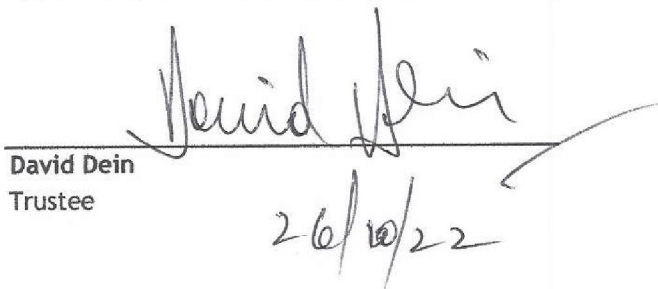 David Dein
David Dein
Trustee
26/10/22